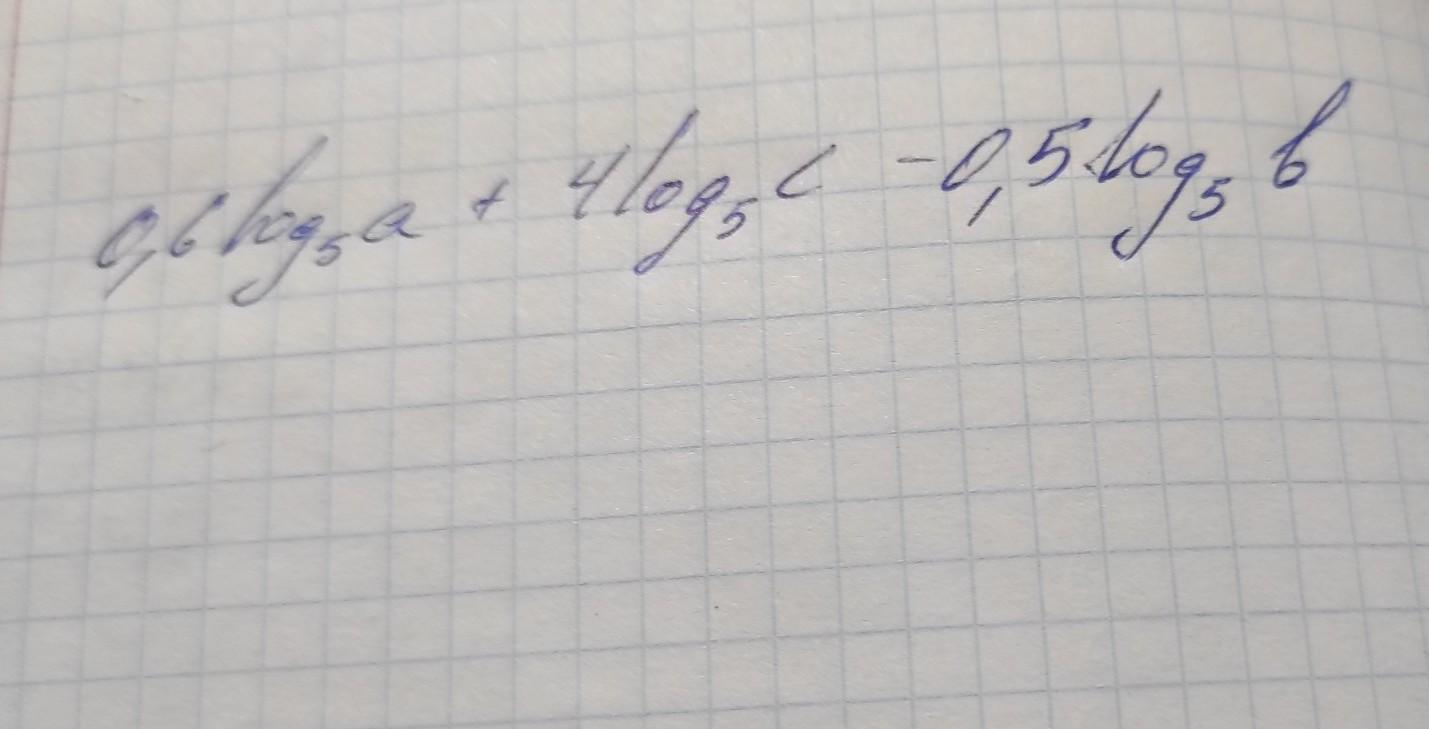 0,6 log₅ a + 4 log₅ c - 0,5 log₅ b